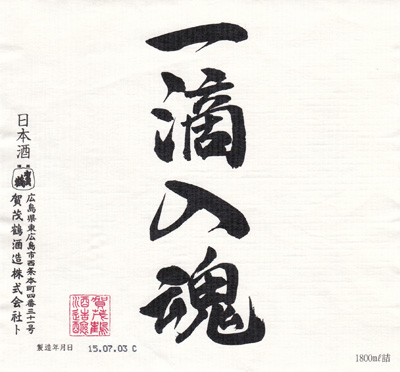 一滴入魂
日本酒
広島県東広島市西条本町四番三十一号
賀茂鶴酒造株式会社ト
製造年月日 15.07.03 C
1800ml詰